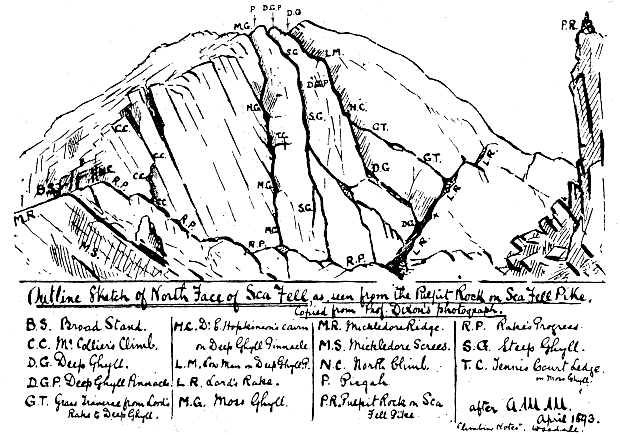 P. D.G.P. D.G.
M.G.
P.R.
S.G.
L.M.
D.G.P.
C.C.
H.G.
H.C.
S.G.
T.C.
G.T.
C.C.
G.T.
L.R.
N.C.
C.C.
D.G.
B.S.
R.P.
M.G.
L.R.
C.C.
S.G.
M.R.
R.P.
D.G.
M.G.
L.R.
M.S.
R.P.
R.P.
Outline Sketch of North Face of Sca Fell, as seen from the Pulpit Rock on Sca Fell Pike.
Copied from Prof. Dixon's photograph.
B.S. Broad Stand.
C.C. Mr. Collier's Climb.
D.G. Deep Ghyll.
D.G.P. Deep Ghyll Pinnacle.
G.T. Grass Traverse from Lord's
Rake to Deep Ghyll.
H.C. Dr. E. Hopkinson's cairn
on Deep Ghyll Pinnacle
L.M. Low Man on Deep Ghyll P.
L.R. Lord's Rake.
M.G. Moss Ghyll.
M.R. Mickledore Ridge.
M.S. Mickledore Screes.
N.C. North Climb.
P. Pisgah
P.R. Pulpit Rock on Sca
Fell Pike
R.P. Rake's Progress.
S.G. Steep Ghyll.
T.C. Tennis Court Ledge.
in Moss Ghyll.
after A.M.M.
April 1893.
"Climbing Notes".